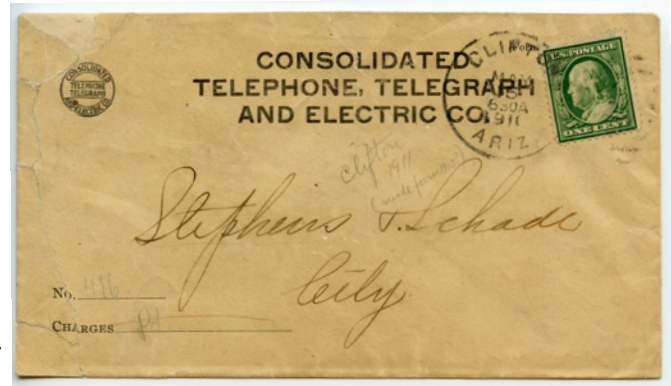 CONSOLIDATED
TELEPHONE, TELEGRAPH
AND ELECTRIC CO.
CONSOLIDATED
TELEPHONE
TELEGRAPH
AND ELECTRIC CO.
CLIFTON
MAY
630A
1911
ARIZ
U.S. POSTAGE
ONE CENT
Clifton
1911
Stephens & Schade
City
No. 496
CHARGES pd